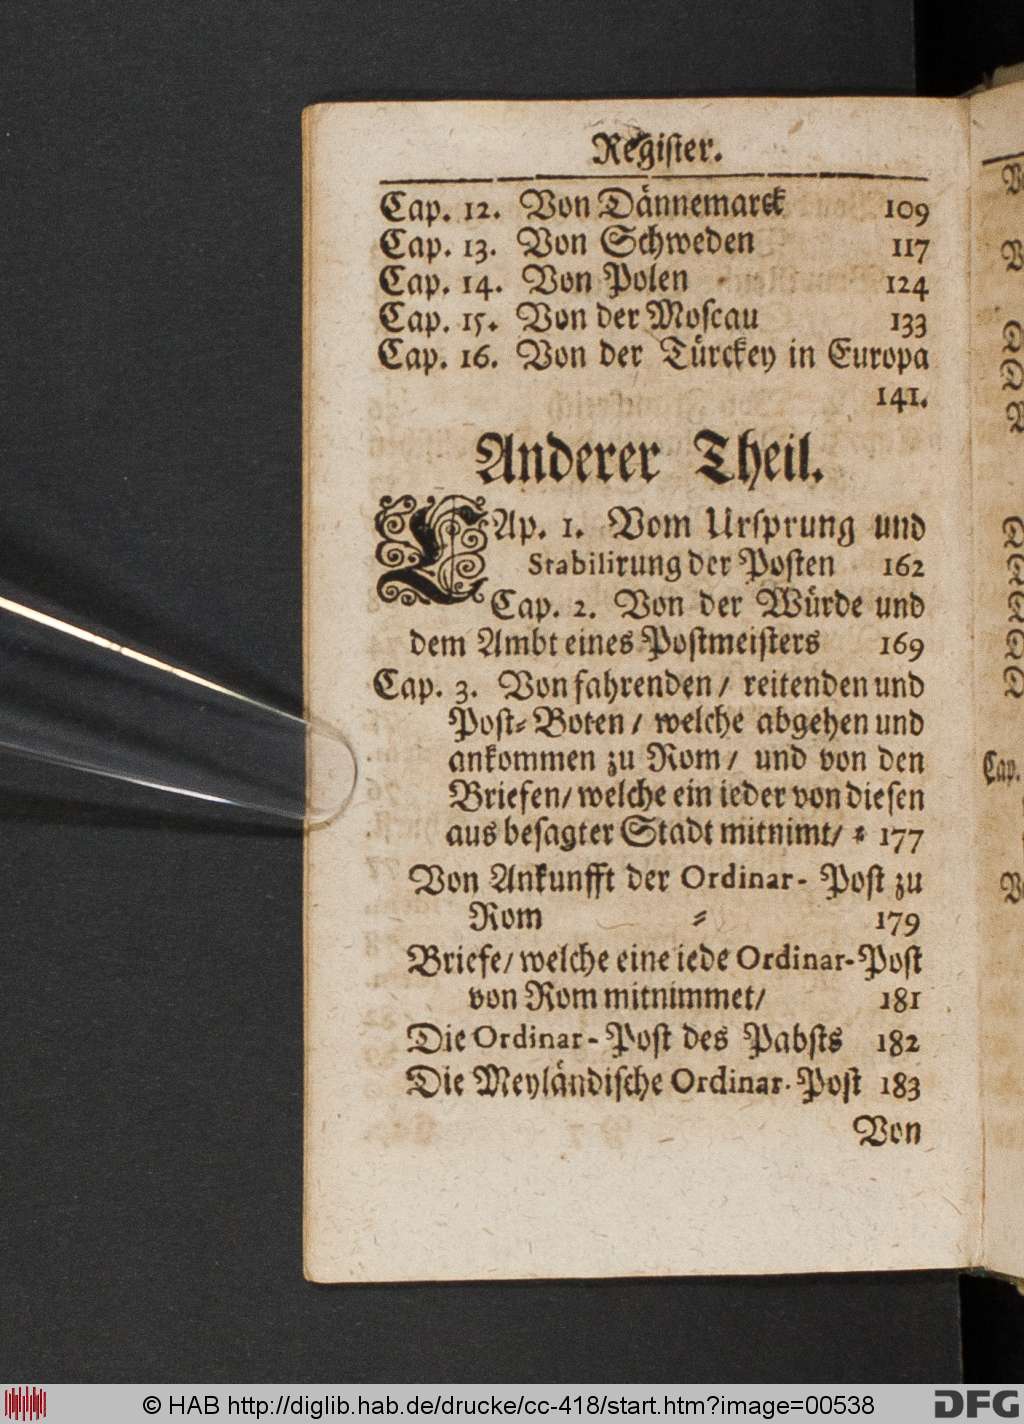 Register.
Cap. 12. Von Dännemarck 109
Cap. 13. Von Schweden 117
Cap. 14. Von Polen 124
Cap. 15. Von der Moscau 133
Cap. 16. Von der Türckey in Europa
141.
Anderer Theil.
CAp. 1. Vom Ursprung und
Stabilirung der Posten 162
Cap. 2. Von der Würde und
dem Ambt eines Postmeisters 169
Cap. 3. Von fahrenden / reitenden und
Post⸗Boten / welche abgehen und
ankommen zu Rom / und von den
Briefen / welche ein ieder von diesen
aus besagter Stadt mitnimt / ⸗ 177
Von Ankunfft der Ordinar- Post zu
Rom ⸗ 179
Briefe / welche eine iede Ordinar-Post
von Rom mitnimmet / 181
Die Ordinar-Post des Pabsts 182
Die Meyländische Ordinar-Post 183
Von
Cap.
© HAB http://diglib.hab.de/drucke/cc-418/start.htm?image=00538
DFG